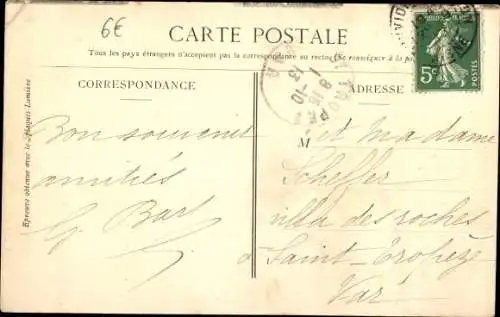 6€
CARTE POSTALE
Tous les pays étrangers n'acceptent pas la correspondance au recto (Se renseigner à la po
CORRESPONDANCE
ADRESSE
Epreuve obtenue avec les Plaques Lumière
Bon souvenir
amitiés
G. Bart
M et Madame
Scheffer
villa des roches
à Saint-Tropez
Var
5c
POSTES